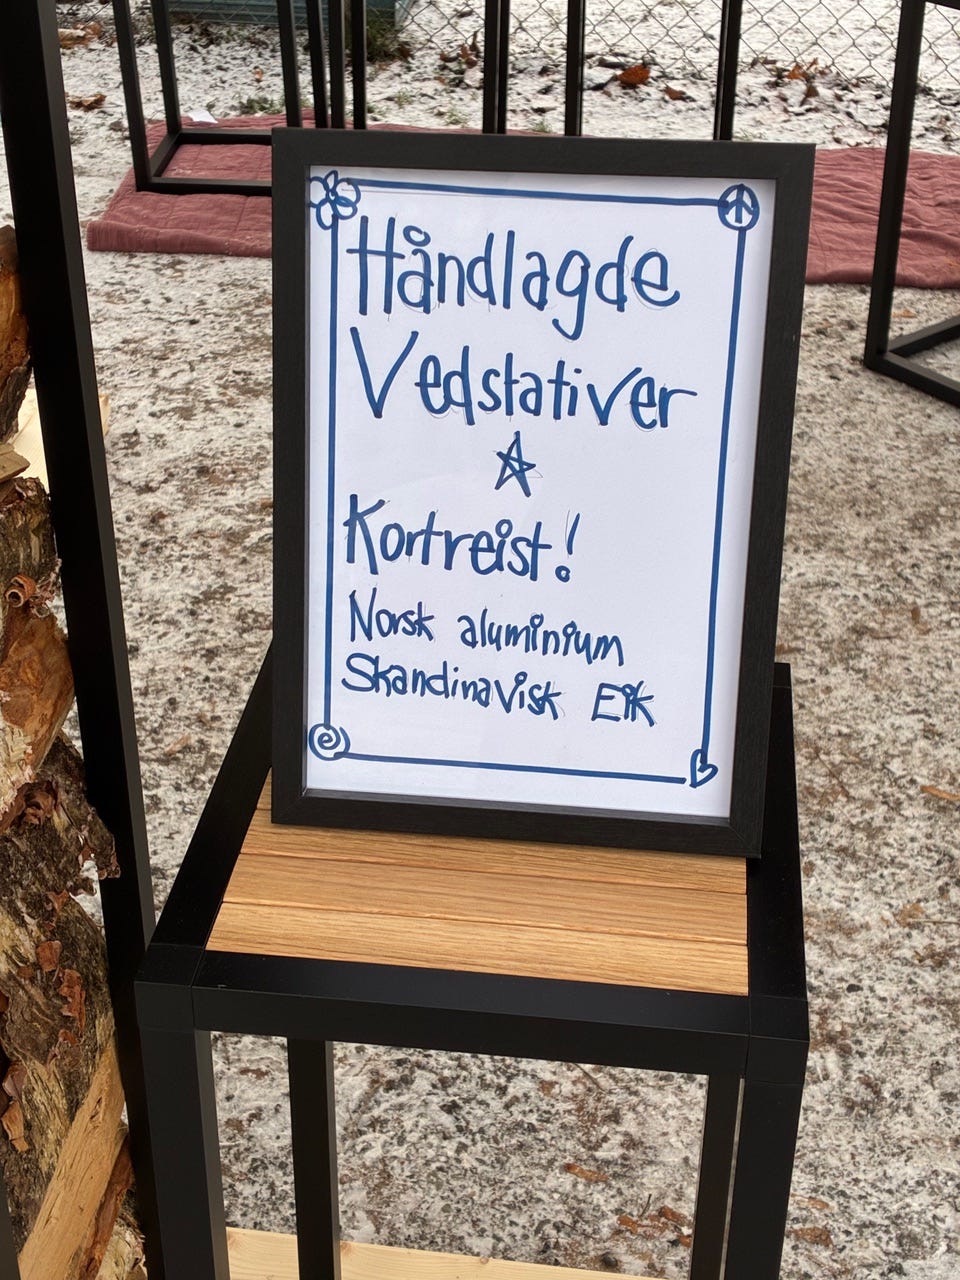 Håndlagde
Vedstativer
Kortreist!
Norsk aluminium
Skandinavisk Eik